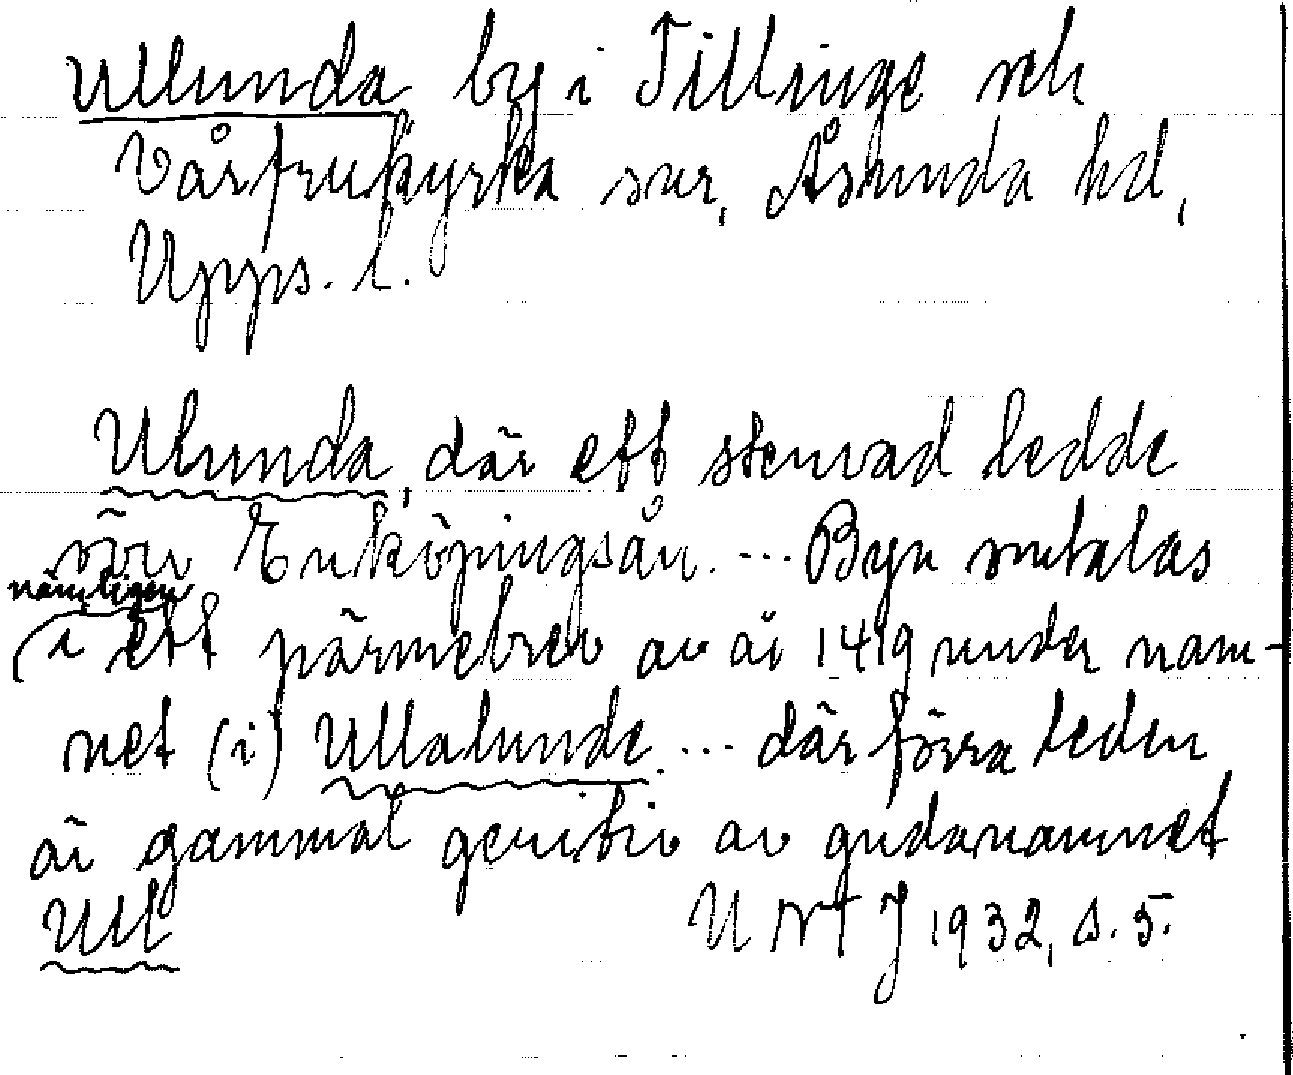 Ullunda by i Tillinge och
Vårfrukyrka snr, Åsunda hd,
Upps. l.
Ulunda, där ett stenvad ledde
över Enköpingsån. ... Byn omtalas
nämligen
i ett pärmebrev av år 1419 under nam-
net (i) Ullalunde ... där förra leden
är gammal genitiv av gudanamnet
Ull UNT J 1932, s. 5.